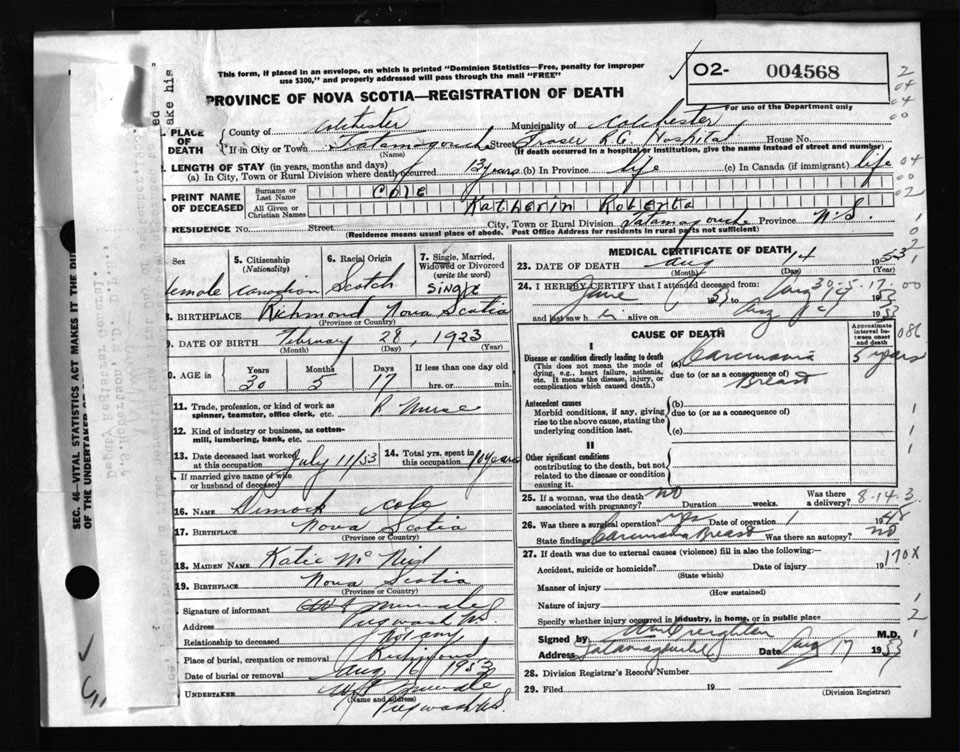 This form, if placed in an envelope, on which is printed "Dominion Statistics—Free, penalty for improper
use $300," and properly addressed will pass through the mail "FREE"
O2- 004568
PROVINCE OF NOVA SCOTIA—REGISTRATION OF DEATH
For use of the Department only
PLACE OF DEATH
County of Colchester Municipality of Colchester
If in City or Town Tatamagouche Street Hospital House No.
(Name) (If death occurred in a hospital or institution, give name instead of street and number)
LENGTH OF STAY (in years, months and days)
(a) In City, Town or Rural Division where death occurred 13 years (b) In Province life (c) In Canada (if immigrant) life
PRINT NAME OF DECEASED
Surname or Last Name Cole
All Given or Christian Names Katherin Roberta
RESIDENCE No. Street City, Town or Rural Division Tatamagouche Province N.S.
(Residence means usual place of abode. Post Office Address for residents in rural parts not sufficient)
Sex 5. Citizenship (Nationality) 6. Racial Origin 7. Single, Married, Widowed or Divorced (write the word)
female Canadian Scotch Single
BIRTHPLACE Richmond Nova Scotia
(Province or Country)
DATE OF BIRTH February 28, 1923
(Month) (Day) (Year)
AGE in Years Months Days If less than one day old
30 5 17 hrs. or min.
11. Trade, profession, or kind of work as spinner, teamster, office clerk, etc. R Nurse
12. Kind of industry or business, as cotton-mill, lumbering, bank, etc.
13. Date deceased last worked at this occupation July 11/53 14. Total yrs. spent in this occupation 10 years
If married give name of wife or husband of deceased
16. NAME Dimock Cole
17. BIRTHPLACE Nova Scotia
(Province or Country)
18. MAIDEN NAME Katie
19. BIRTHPLACE Nova Scotia
(Province or Country)
Signature of informant
Address Pugwash NS
Relationship to deceased Not any
Place of burial, cremation or removal Richmond
Date of burial or removal Aug 16 1953
UNDERTAKER
(Name and address) Pugwash NS
MEDICAL CERTIFICATE OF DEATH
23. DATE OF DEATH Aug 14 1953
(Month) (Day) (Year)
24. I HEREBY CERTIFY that I attended deceased from
June 53 to Aug 14 1953
and last saw h alive on Aug 1953
30-5-17
CAUSE OF DEATH
Approximate interval between onset and death
I
Disease or condition directly leading to death (a) Carcinoma 5 years
(This does not mean the mode of dying, e.g., heart failure, asthenia, etc. It means the disease, injury, or complication which caused death.)
due to (or as a consequence of) Breast
Antecedent causes
Morbid conditions, if any, giving rise to the above cause, stating the underlying condition last.
(b)
due to (or as a consequence of)
(c)
II
Other significant conditions
contributing to the death, but not related to the disease or condition causing it.
25. If a woman, was the death associated with pregnancy? no Duration weeks. Was there a delivery?
8-14-3
26. Was there a surgical operation? yes Date of operation 1948
State findings Carcinoma Breast Was there an autopsy? no
27. If death was due to external causes (violence) fill in also the following:—
Accident, suicide or homicide? Date of injury 19
(State which)
170X
Manner of injury
(How sustained)
Nature of injury
Specify whether injury occurred in industry, in home, or in public place
Signed by Creighton M.D.
Address Tatamagouche Date Aug 17 1953
28. Division Registrar's Record Number
29. Filed 19
(Division Registrar)
SEC. 46—VITAL STATISTICS ACT MAKES IT THE
OF THE UNDERTAKER
Deputy Registrar General